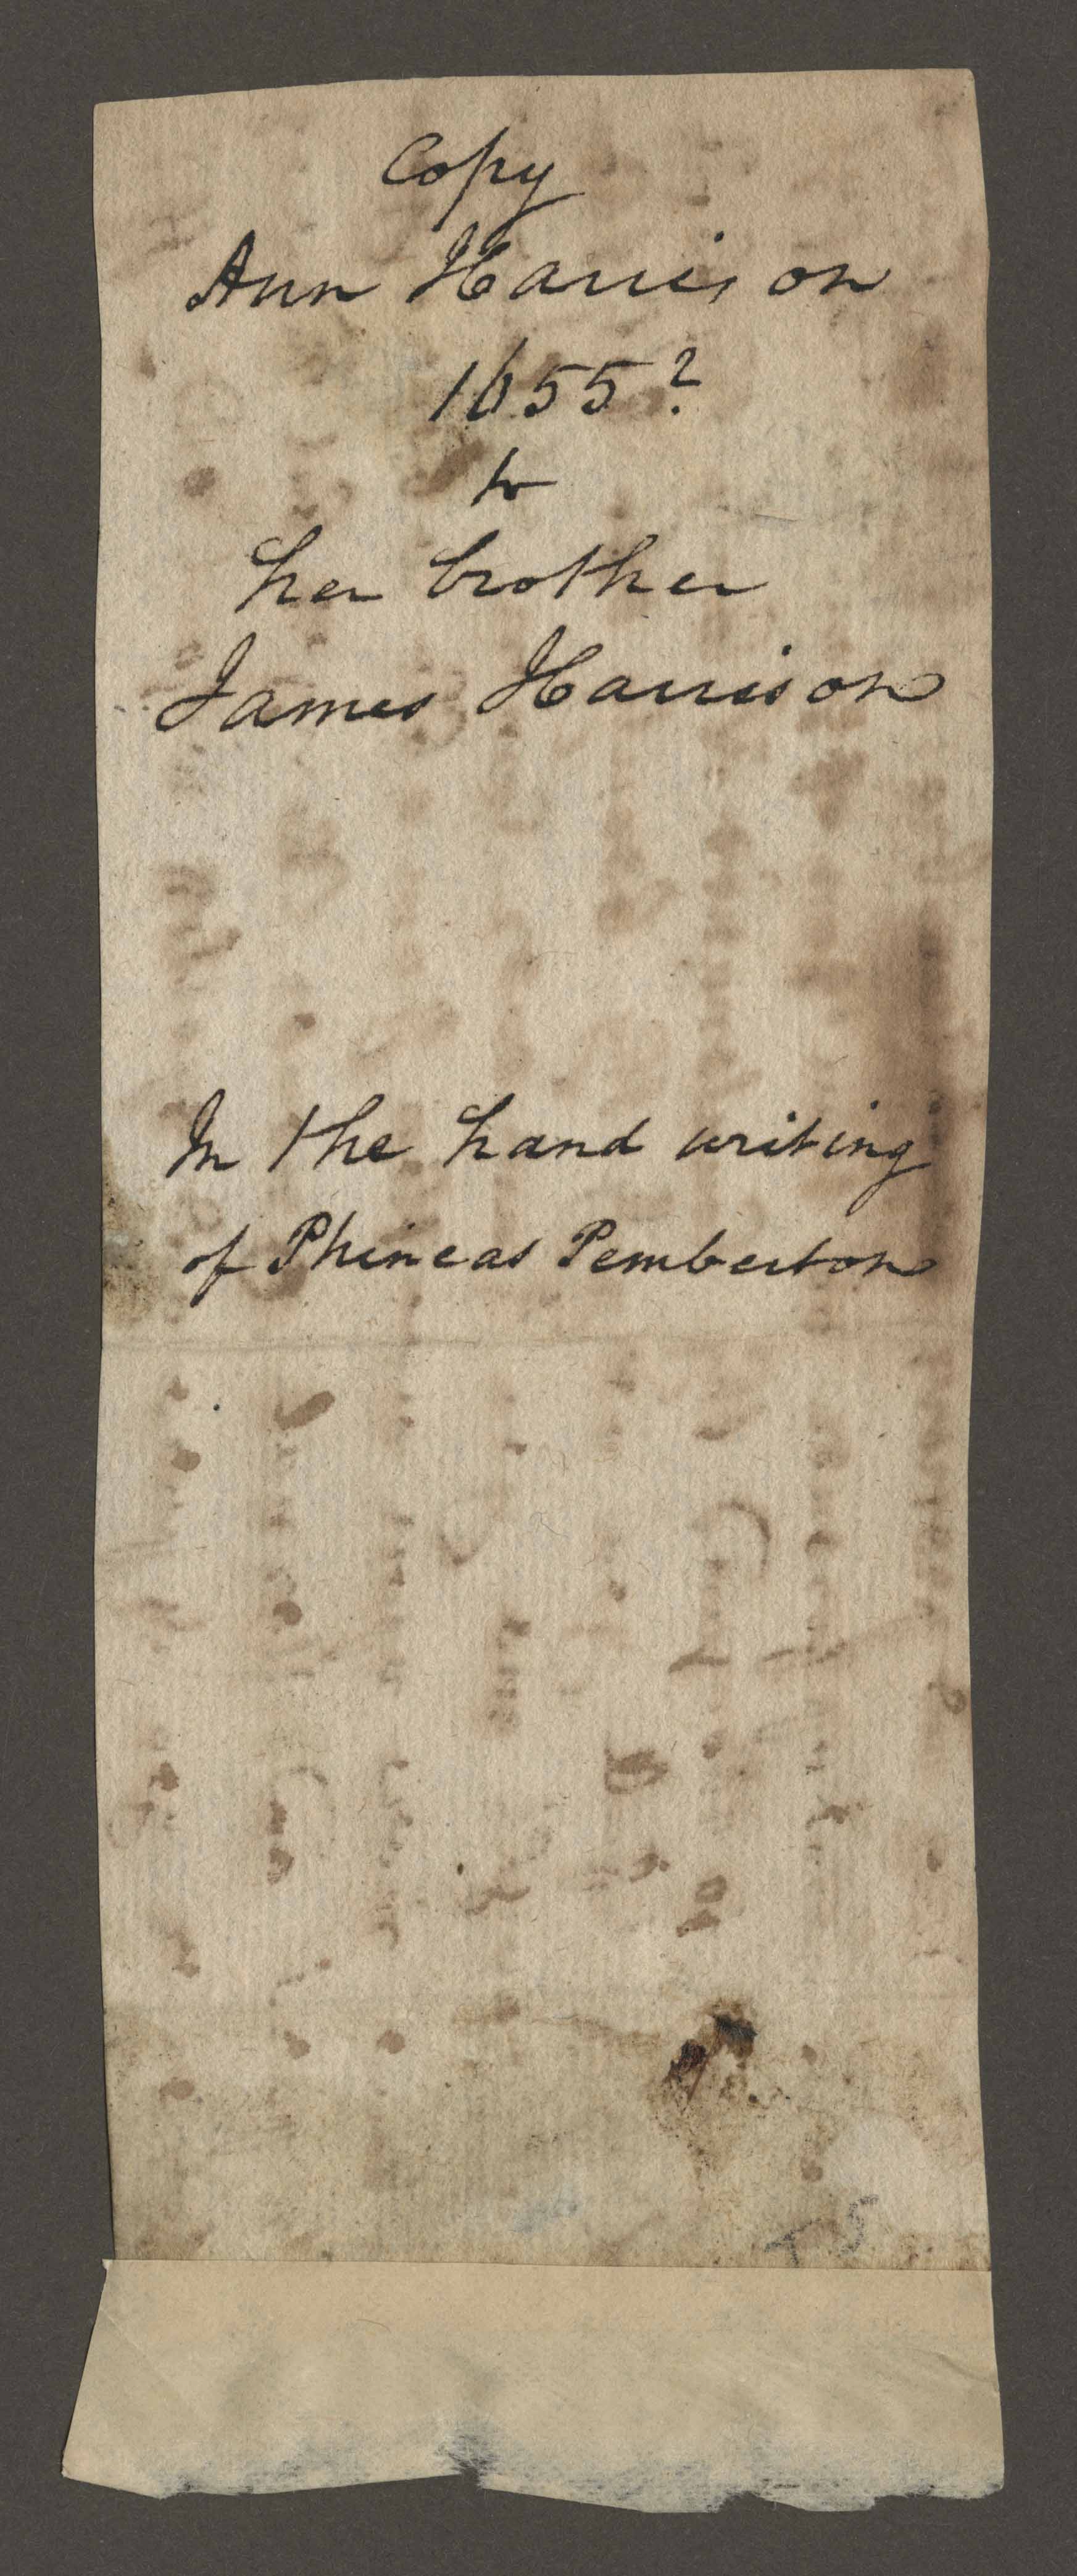 Copy
Ann Harrison
1655?
to
her brother
James Harrison
In the hand writing
of Phineas Pemberton